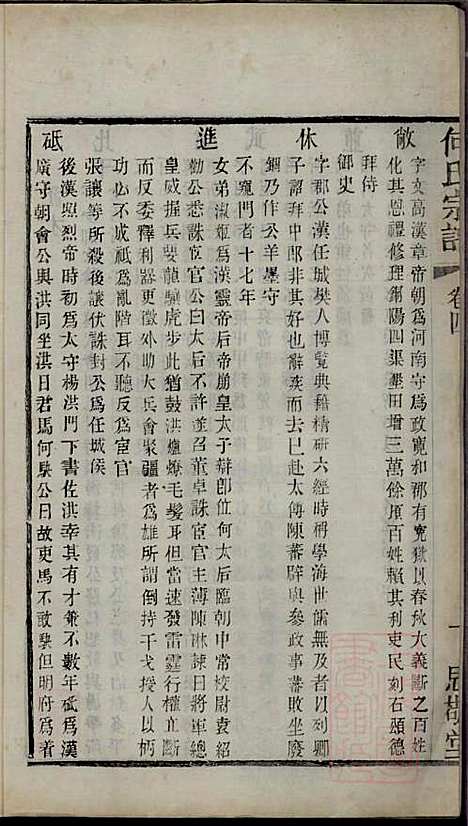 何氏宗譜 卷四 一 思敬堂
敞
字文高漢章帝朝為河南守為政寬和郡有寃獄以春秋大義斷之百姓
化其恩禮修理鮦陽四渠墾田增三萬餘頃百姓賴其利吏民刻石頌德
拜侍
御史
休
字郡公漢任城樊人博覽典籍精研六經時稱學海世儒無及以列卿
子詔拜中郎非其好也辭疾而去已赴太傅陳蕃辟與參政事蕃敗坐廢
錮乃作公羊墨守
不窺門者十七年
進
女弟淑姬為漢靈帝后帝崩皇太子辯即位何太后臨朝中常校尉袁紹
勸公悉誅宦官公白太后不許遂召董卓誅宦官主薄陳淋諫曰將軍總
皇威握兵要龍驤虎步此猶鼓洪爐燎毛髮耳但當速發雷霆行權立斷
而反委釋利器更徵外助大兵會聚疆者為雄所謂倒持干戈授人以柄
功必不成祗為亂階耳不聽反為宦官
張讓等所殺後讓伏誅封公為任城侯
砥
後漢照烈帝時初為太守楊洪門下書佐洪幸其有才兼不數年砥為漢
廣守朝會公與洪同坐洪曰君馬何駛公曰故吏馬不敢駛但明府為著